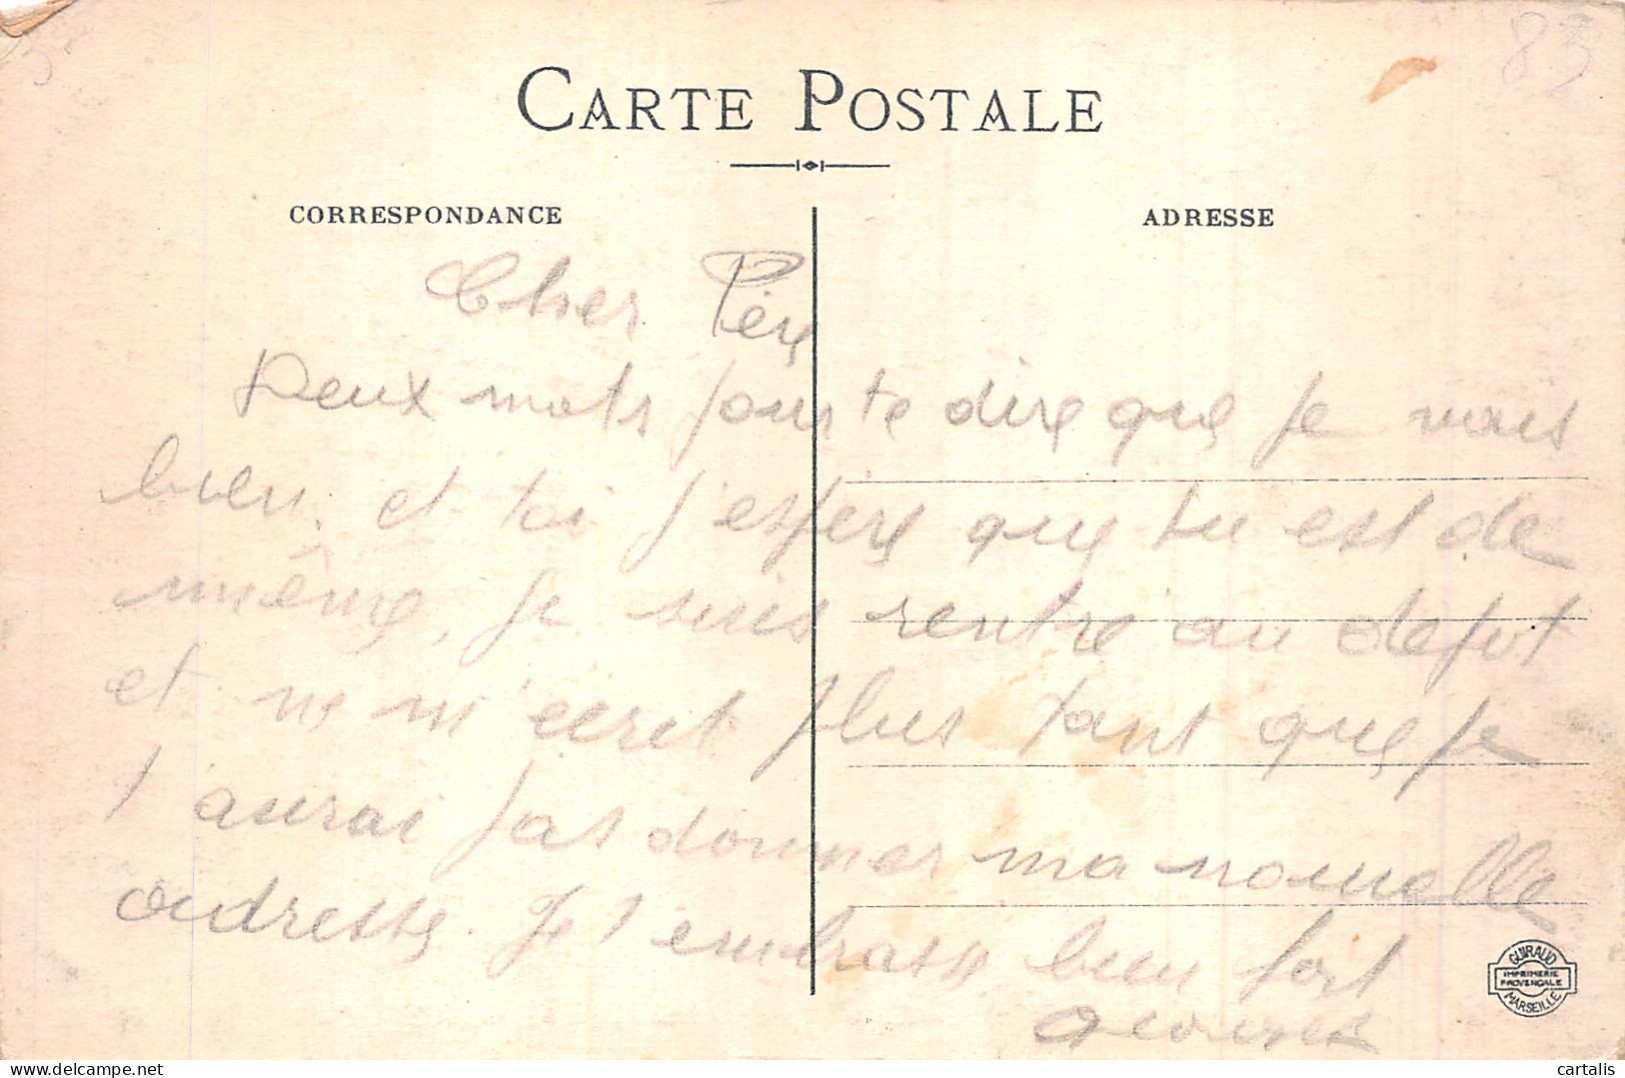 83
CARTE POSTALE
CORRESPONDANCE
ADRESSE
Cher Père
Deux mots pour te dire que je vais
bien. et toi j'espère que tu est de
même, je suis rentre au depot
et ne m'ecret plus tant que je
t aurai pas donner ma nouvelle
adresse. Je t embrasse bien fort
GUIRAUD
IMPRIMERIE
PROVENCALE
MARSEILLE
cartalis
delcampe.net